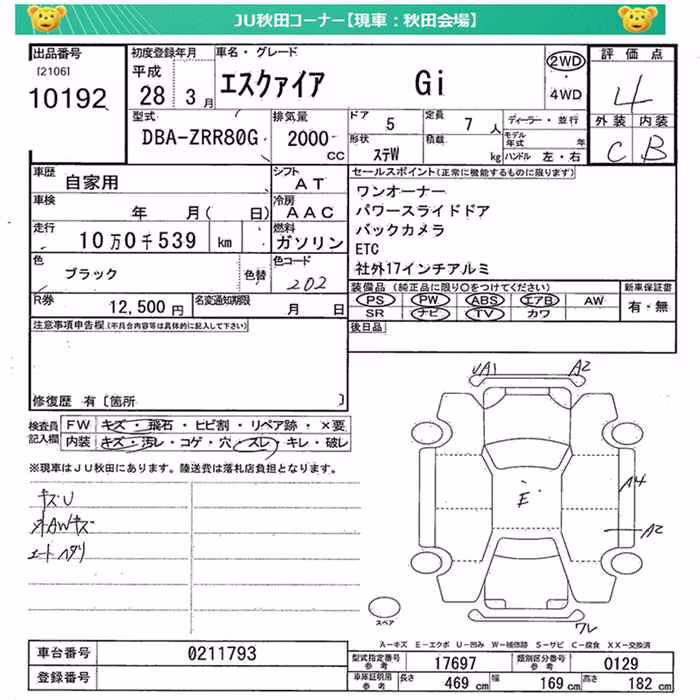 JU秋田コーナー【現車：秋田会場】
出品番号
[2106]
10192
初度登録年月
平成
28年3月
車名・グレード
エスクァイア Gi
2WD
・
4WD
評価点
4
外装 内装
C B
型式
DBA-ZRR80G
排気量
2000
CC
ドア
5
定員
7人
ディーラー・並行
形状
ステW
積載
kg
モデル年式 年
ハンドル 左・右
車歴
自家用
シフト
AT
車検
年 月( 日)
冷房
AAC
走行
10万0千539 km
燃料
ガソリン
色
ブラック
色替
色コード
202
R券
12,500円
名変通知期限
月 日
セールスポイント(正常に機能するものに限ります)
ワンオーナー
パワースライドドア
バックカメラ
ETC
社外17インチアルミ
装備品(純正品に限り○をつけてください)
PS PW ABS エアB AW
SR ナビ TV カワ
新車保証書
有・無
後日品
注意事項申告欄(不具合内容等は具体的に記入して下さい)
修復歴 有〔箇所 〕
検査員
記入欄
FW キズ・飛石・ヒビ割・リペア跡・×要
内装 キズ・汚レ・コゲ・穴・スレ・キレ・破レ
※現車はJU秋田にあります。陸送費は落札店負担となります。
キズU
オAWキズ
シートヘタリ
UA1
A2
E
A4
A2
ワレ
スペア
A－キズ E－エクボ U－凹み W－補修跡 S－サビ C－腐食 XX－交換済
車台番号
0211793
登録番号
型式指定番号
参考
17697
類別区分番号
参考
0129
車庫証明用
参考
長さ 469 cm
幅 169 cm
高さ 182 cm